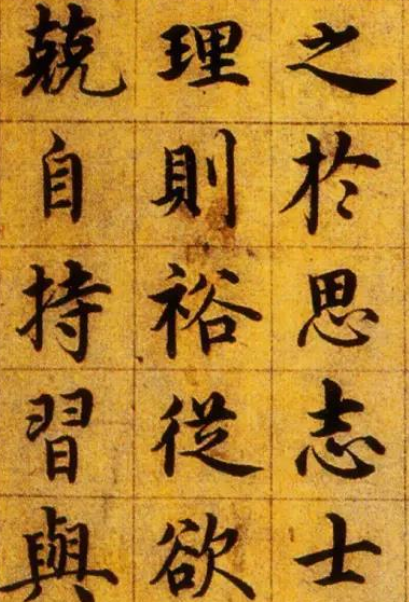 之於思志士
理則裕從欲
兢自持習與